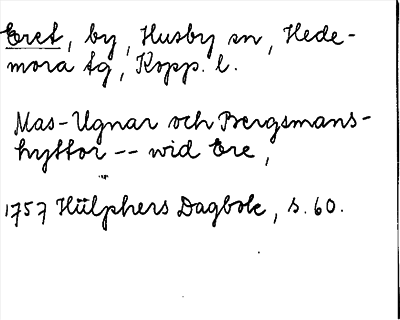 Eret, by, Husby sn, Hede-
mora tg, Kopp. l.
Mas-Ugnar och Bergsmans-
hyttor -- wid Ere,
1757 Hülphers Dagbok, s. 60.